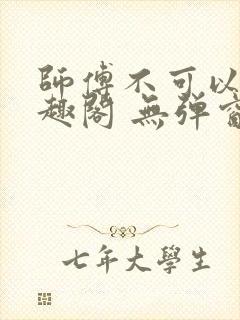 師傅不可以
趣閣 無彈窗
七年大學生